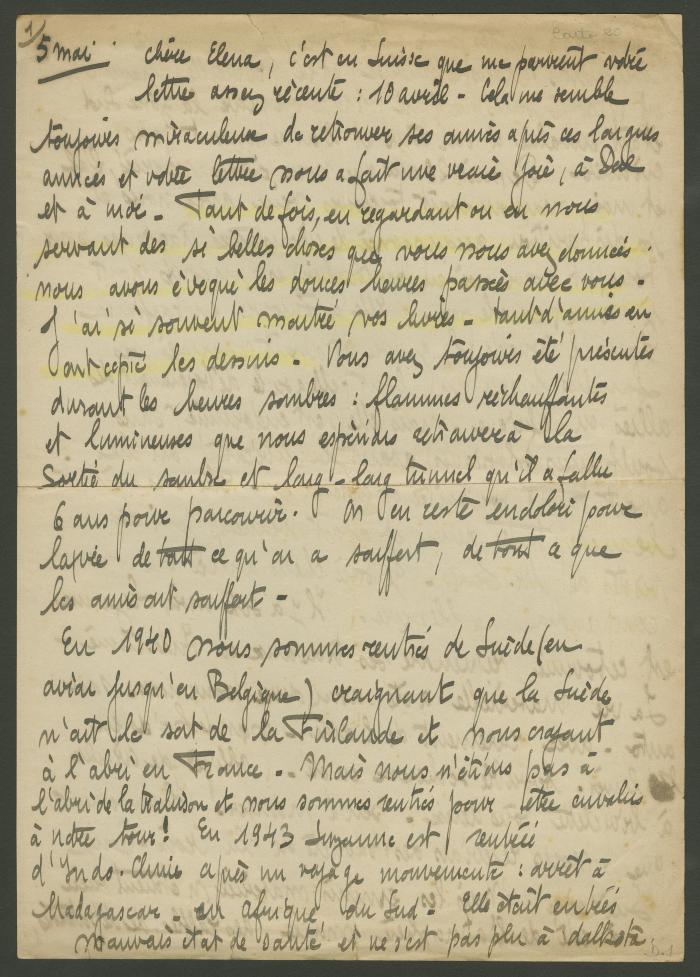 1)
5 mai. chère Elena, c'est en Suisse que me parvient votre
lettre assez récente : 10 avril - Cela me semble
toujours miraculeux de retrouver ses amies après ces longues
années et votre lettre nous a fait une vraie joie, à
et à moi - Tant de fois, en regardant ou en nous
servant des si belles choses que vous nous avez données
nous avons évoqué les douces heures passées avec vous -
J'ai si souvent montré vos livres - tant d'amies en
ont copié les dessins - Vous avez toujours été présentes
durant les heures sombres : flammes réchauffantes
et lumineuses que nous espérions retrouver à la
Sortie du sombre et long - long tunnel qu'il a fallu
6 ans pour parcourir. On en reste endolori pour
la vie de tout ce qu'on a souffert, de tout ce que
les amis ont souffert -
En 1940 nous sommes rentrés de Suède (en
avion jusqu'en Belgique) craignant que la Suède
n'ait le sort de la Finlande et nous croyant
à l'abri en France - Mais nous n'étions pas à
l'abri de la trahison et nous sommes rentrés pour être envahis
à notre tour! En 1943 Suzanne est rentrée
d'Indo-Chine après un voyage mouvementé : arrêt à
Madagascar - en Afrique du Sud - Elle était en très
mauvais état de santé et ne s'est pas plu à